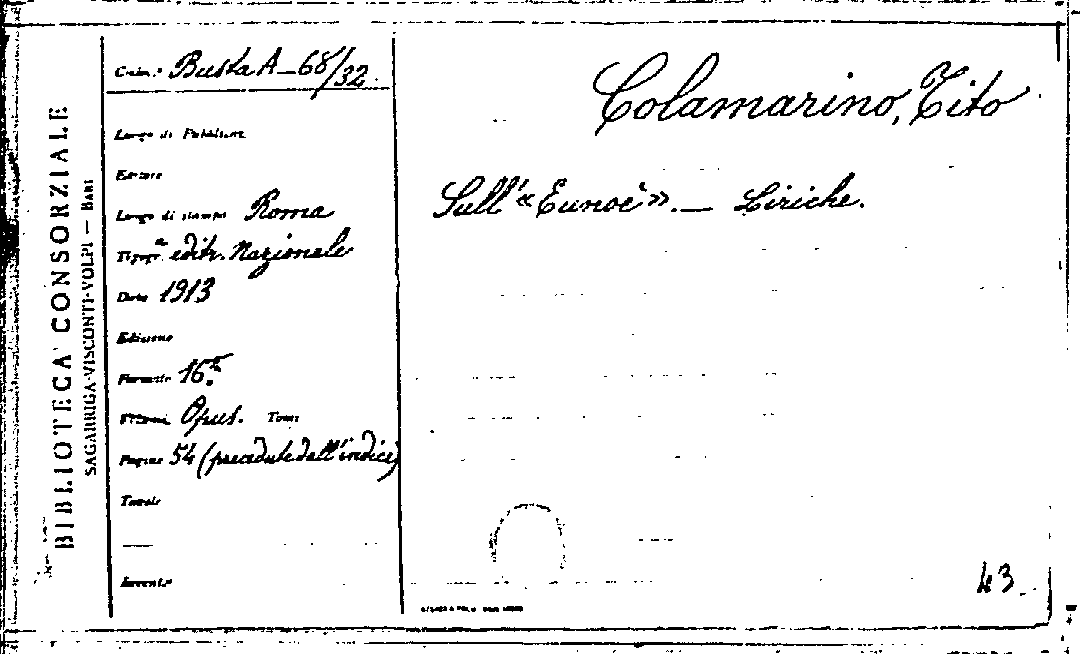 BIBLIOTECA CONSORZIALE
SAGARRIGA-VISCONTI-VOLPI — BARI
Busta A - 68/32
Luogo di Pubblicaz.
Editore
Luogo di stampa Roma
Tipogr.ª editr. Nazionale
Data 1913
Edizione
Formato 16º
Volumi Opus. Tomi
Pagine 54 (precedute dall'indice)
Tavole
Inventario
Colamarino, Tito
Sull' «Eunoè». — Liriche.
43